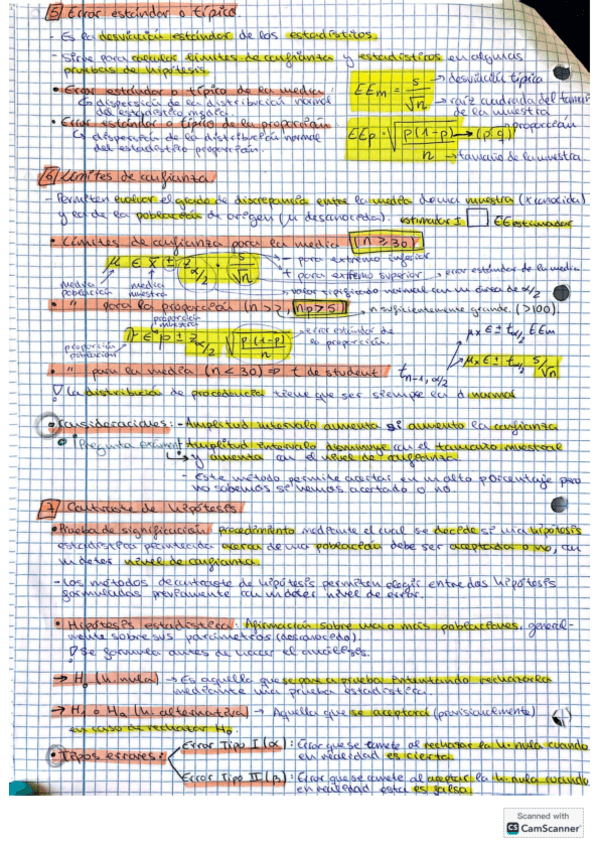 5 Error estándar o típico
- Es la desviación estándar de los estadísticos.
- Sirve para calcular límites de confianza y estadísticos en algunas
pruebas de hipótesis.
• Error estándar o típico de la media:
↳ dispersión de la distribución normal
del estadístico media
EEm = s/√n → desviación típica
→ raíz cuadrada del tamaño
de la muestra
• Error estándar o típico de la proporción
↳ dispersión de la distribución normal
del estadístico proporción.
EEp = √p(1-p)/n → (p·q)
proporción
→ tamaño de la muestra
6 Límites de confianza
- Permiten evaluar el grado de discrepancia entre la media de una muestra (x conocida)
y la de la población de origen (μ desconocida). estimador ± □ EE estimador
• Límites de confianza para la media (n ≥ 30)
μ ∈ x̄ ± z α/2 · s/√n
- para extremo inferior
+ para extremo superior
error estándar de la media
media población
media muestra
valor tipificado normal con un área de α/2
• " para la proporción (n > 2, np > 5)
n suficientemente grande (>100).
proporción muestra
π ∈ p ± z α/2 √p(1-p)/n
error estándar de
la proporción.
proporción población
μx ∈ ± tα/2 EEm
μx ∈ ± tα/2 s/√n
• " para la media (n < 30) ⇒ t de student
t n-1, α/2
! La distribución de procedencia tiene que ser siempre la d normal
• Consideraciones: - Amplitud intervalo aumenta si aumento la confianza
• Pregunta examen! Amplitud intervalo disminuye con el tamaño muestral
↳ y aumenta con el nivel de confianza
- Este método permite acertar en un alto porcentaje pero
no sabemos si hemos acertado o no.
7 Contraste de hipótesis
• Prueba de significación: procedimiento mediante el cual se decide si una hipótesis
estadística acerca de una población debe ser aceptada o no, con
un deter nivel de confianza
- Los métodos de contraste de hipótesis permiten elegir entre dos hipótesis
formuladas previamente con un deter nivel de error.
• Hipótesis estadística: Afirmación sobre una o más poblaciones, general-
mente sobre sus parámetros (desconocido).
! Se formula antes de hacer el análisis.
→ H₀ (h. nula) → Es aquella que se pone a prueba intentando rechazarla
mediante una prueba estadística.
→ H₁ o Ha (h. alternativa) → Aquella que se aceptará (provisionalmente)
en caso de rechazar H₀
• Tipos errores:
Error Tipo I (α): Error que se comete al rechazar la h. nula cuando
en realidad es cierta
Error Tipo II (β): Error que se comete al aceptar la h. nula cuando
en realidad esta es falsa
Scanned with
CS CamScanner